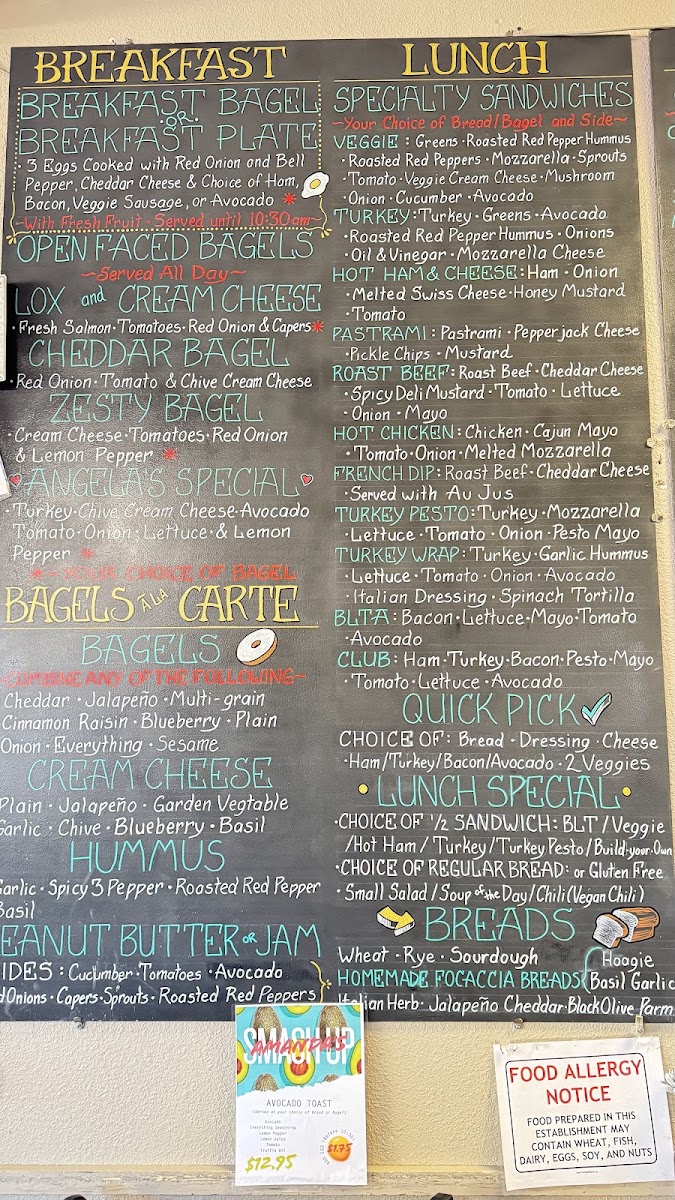 BREAKFAST
BREAKFAST BAGEL
OR
BREAKFAST PLATE
3 Eggs Cooked with Red Onion and Bell
Pepper, Cheddar Cheese & Choice of Ham,
Bacon, Veggie Sausage, or Avocado *
~With Fresh Fruit · Served until 10:30am~
OPEN FACED BAGELS
~Served All Day~
LOX and CREAM CHEESE
· Fresh Salmon · Tomatoes · Red Onion & Capers *
CHEDDAR BAGEL
Red Onion · Tomato & Chive Cream Cheese
ZESTY BAGEL
· Cream Cheese · Tomatoes · Red Onion
& Lemon Pepper *
ANGELA'S SPECIAL
· Turkey · Chive Cream Cheese · Avocado
Tomato · Onion · Lettuce · & Lemon
Pepper *
* ~ YOUR CHOICE OF BAGEL
BAGELS À LA CARTE
BAGELS
~COMBINE ANY OF THE FOLLOWING~
Cheddar · Jalapeño · Multi-grain
Cinnamon Raisin · Blueberry · Plain
Onion · Everything · Sesame
CREAM CHEESE
Plain · Jalapeño · Garden Vegtable
Garlic · Chive · Blueberry · Basil
HUMMUS
Garlic · Spicy 3 Pepper · Roasted Red Pepper
Basil
PEANUT BUTTER OR JAM
SIDES : Cucumber · Tomatoes · Avocado
Onions · Capers · Sprouts · Roasted Red Peppers
LUNCH
SPECIALTY SANDWICHES
~Your Choice of Bread/Bagel and Side~
VEGGIE : Greens · Roasted Red Pepper Hummus
· Roasted Red Peppers · Mozzarella · Sprouts
· Tomato · Veggie Cream Cheese · Mushroom
· Onion · Cucumber · Avocado
TURKEY : Turkey · Greens · Avocado
· Roasted Red Pepper Hummus · Onions
· Oil & Vinegar · Mozzarella Cheese
HOT HAM & CHEESE : Ham · Onion
· Melted Swiss Cheese · Honey Mustard
· Tomato
PASTRAMI : Pastrami · Pepperjack Cheese
· Pickle Chips · Mustard
ROAST BEEF : Roast Beef · Cheddar Cheese
· Spicy Deli Mustard · Tomato · Lettuce
· Onion · Mayo
HOT CHICKEN : Chicken · Cajun Mayo
· Tomato · Onion · Melted Mozzarella
FRENCH DIP : Roast Beef · Cheddar Cheese
· Served with Au Jus
TURKEY PESTO : Turkey · Mozzarella
· Lettuce · Tomato · Onion · Pesto Mayo
TURKEY WRAP : Turkey · Garlic Hummus
· Lettuce · Tomato · Onion · Avocado
· Italian Dressing · Spinach Tortilla
BLTA : Bacon · Lettuce · Mayo · Tomato
· Avocado
CLUB : Ham · Turkey · Bacon · Pesto · Mayo
· Tomato · Lettuce · Avocado
QUICK PICK
CHOICE OF : Bread · Dressing · Cheese
· Ham/Turkey/Bacon/Avocado · 2 Veggies
· LUNCH SPECIAL ·
· CHOICE OF 1/2 SANDWICH : BLT / Veggie
/Hot Ham / Turkey / Turkey Pesto / Build-your-Own
· CHOICE OF REGULAR BREAD : or Gluten Free
· Small Salad / Soup of the Day / Chili (Vegan Chili)
BREADS
Wheat · Rye · Sourdough Hoagie
HOMEMADE FOCACCIA BREADS Basil Garlic
Italian Herb · Jalapeño Cheddar · Black Olive Parm
SMASH UP
AMANDA'S
AVOCADO TOAST
(Served on your choice of Bread or Bagel)
Avocado
Everything Seasoning
Lemon Pepper
Lemon Juice
Tomato
Truffle Oil
$12.95
$1.75
FOOD ALLERGY
NOTICE
FOOD PREPARED IN THIS
ESTABLISHMENT MAY
CONTAIN WHEAT, FISH,
DAIRY, EGGS, SOY, AND NUTS